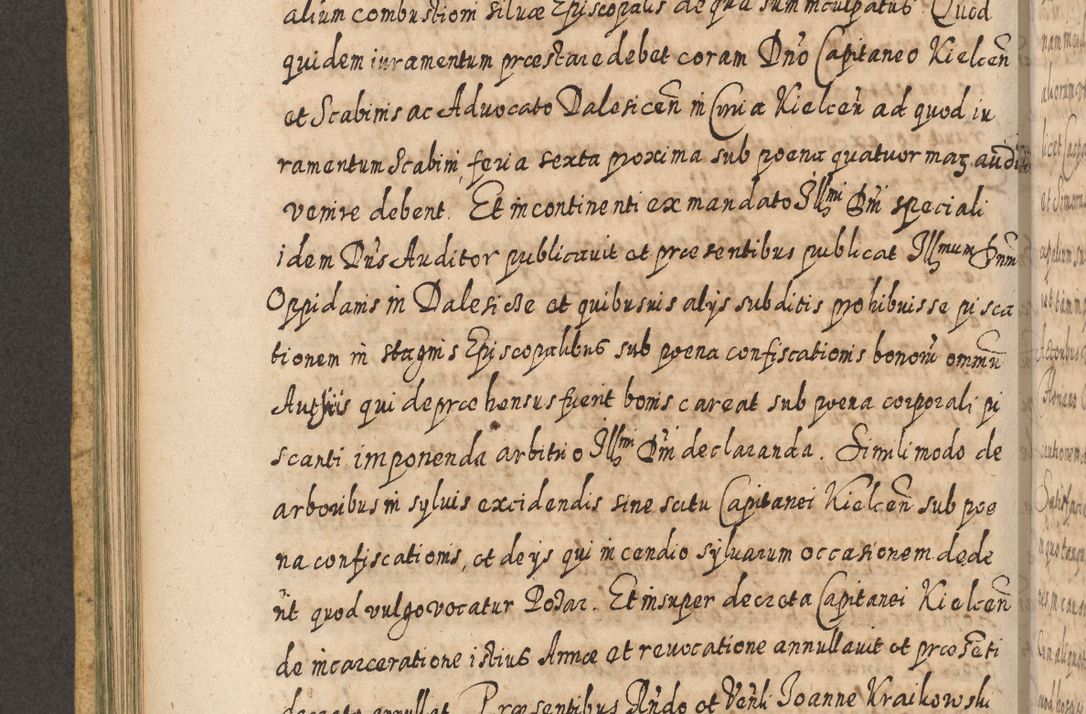 alium combustioni siluæ Episcopalis de qua sum inculpatus Quod
quidem iuramentum præstare debet coram Dño Capitaneo Kielceñ
et Scabinis ac Advocato Dalesiceñ in Curia Kielceñ ad quod iu
ramentum Scabini, feria sexta proxima sub poena quatuor
venire debent. Et incontinenti ex mandato Illmi Dñi speciali
idem Dñs Auditor publicauit et præsentibus publicat Illmum Dnm
Oppidanis in Dalesicße et quibusuis alijs subditis prohibuisse pisca
tionem in stagnis Episcopalibus sub poena confiscationis bonorũ omniũ
qui deprœhensus fuerit bonis careat sub poena corporali pi
scanti imponenda arbitrio Illmi Dñi declaranda. Simili modo de
arboribus in syluis excidendis sine scitu Capitanei Kielceñ sub poe
na confiscationis, et de ijs qui incendio syluarum occasionem dede
rũt quod vulgo vocatur Pożar. Et insuper decreta Capitanei Kielceñ
de incarceratione istius Annæ et reuocatione annullauit et præsẽti
decreto annullat. Præsentibus Rñdo et Venli Joanne Kraikowski